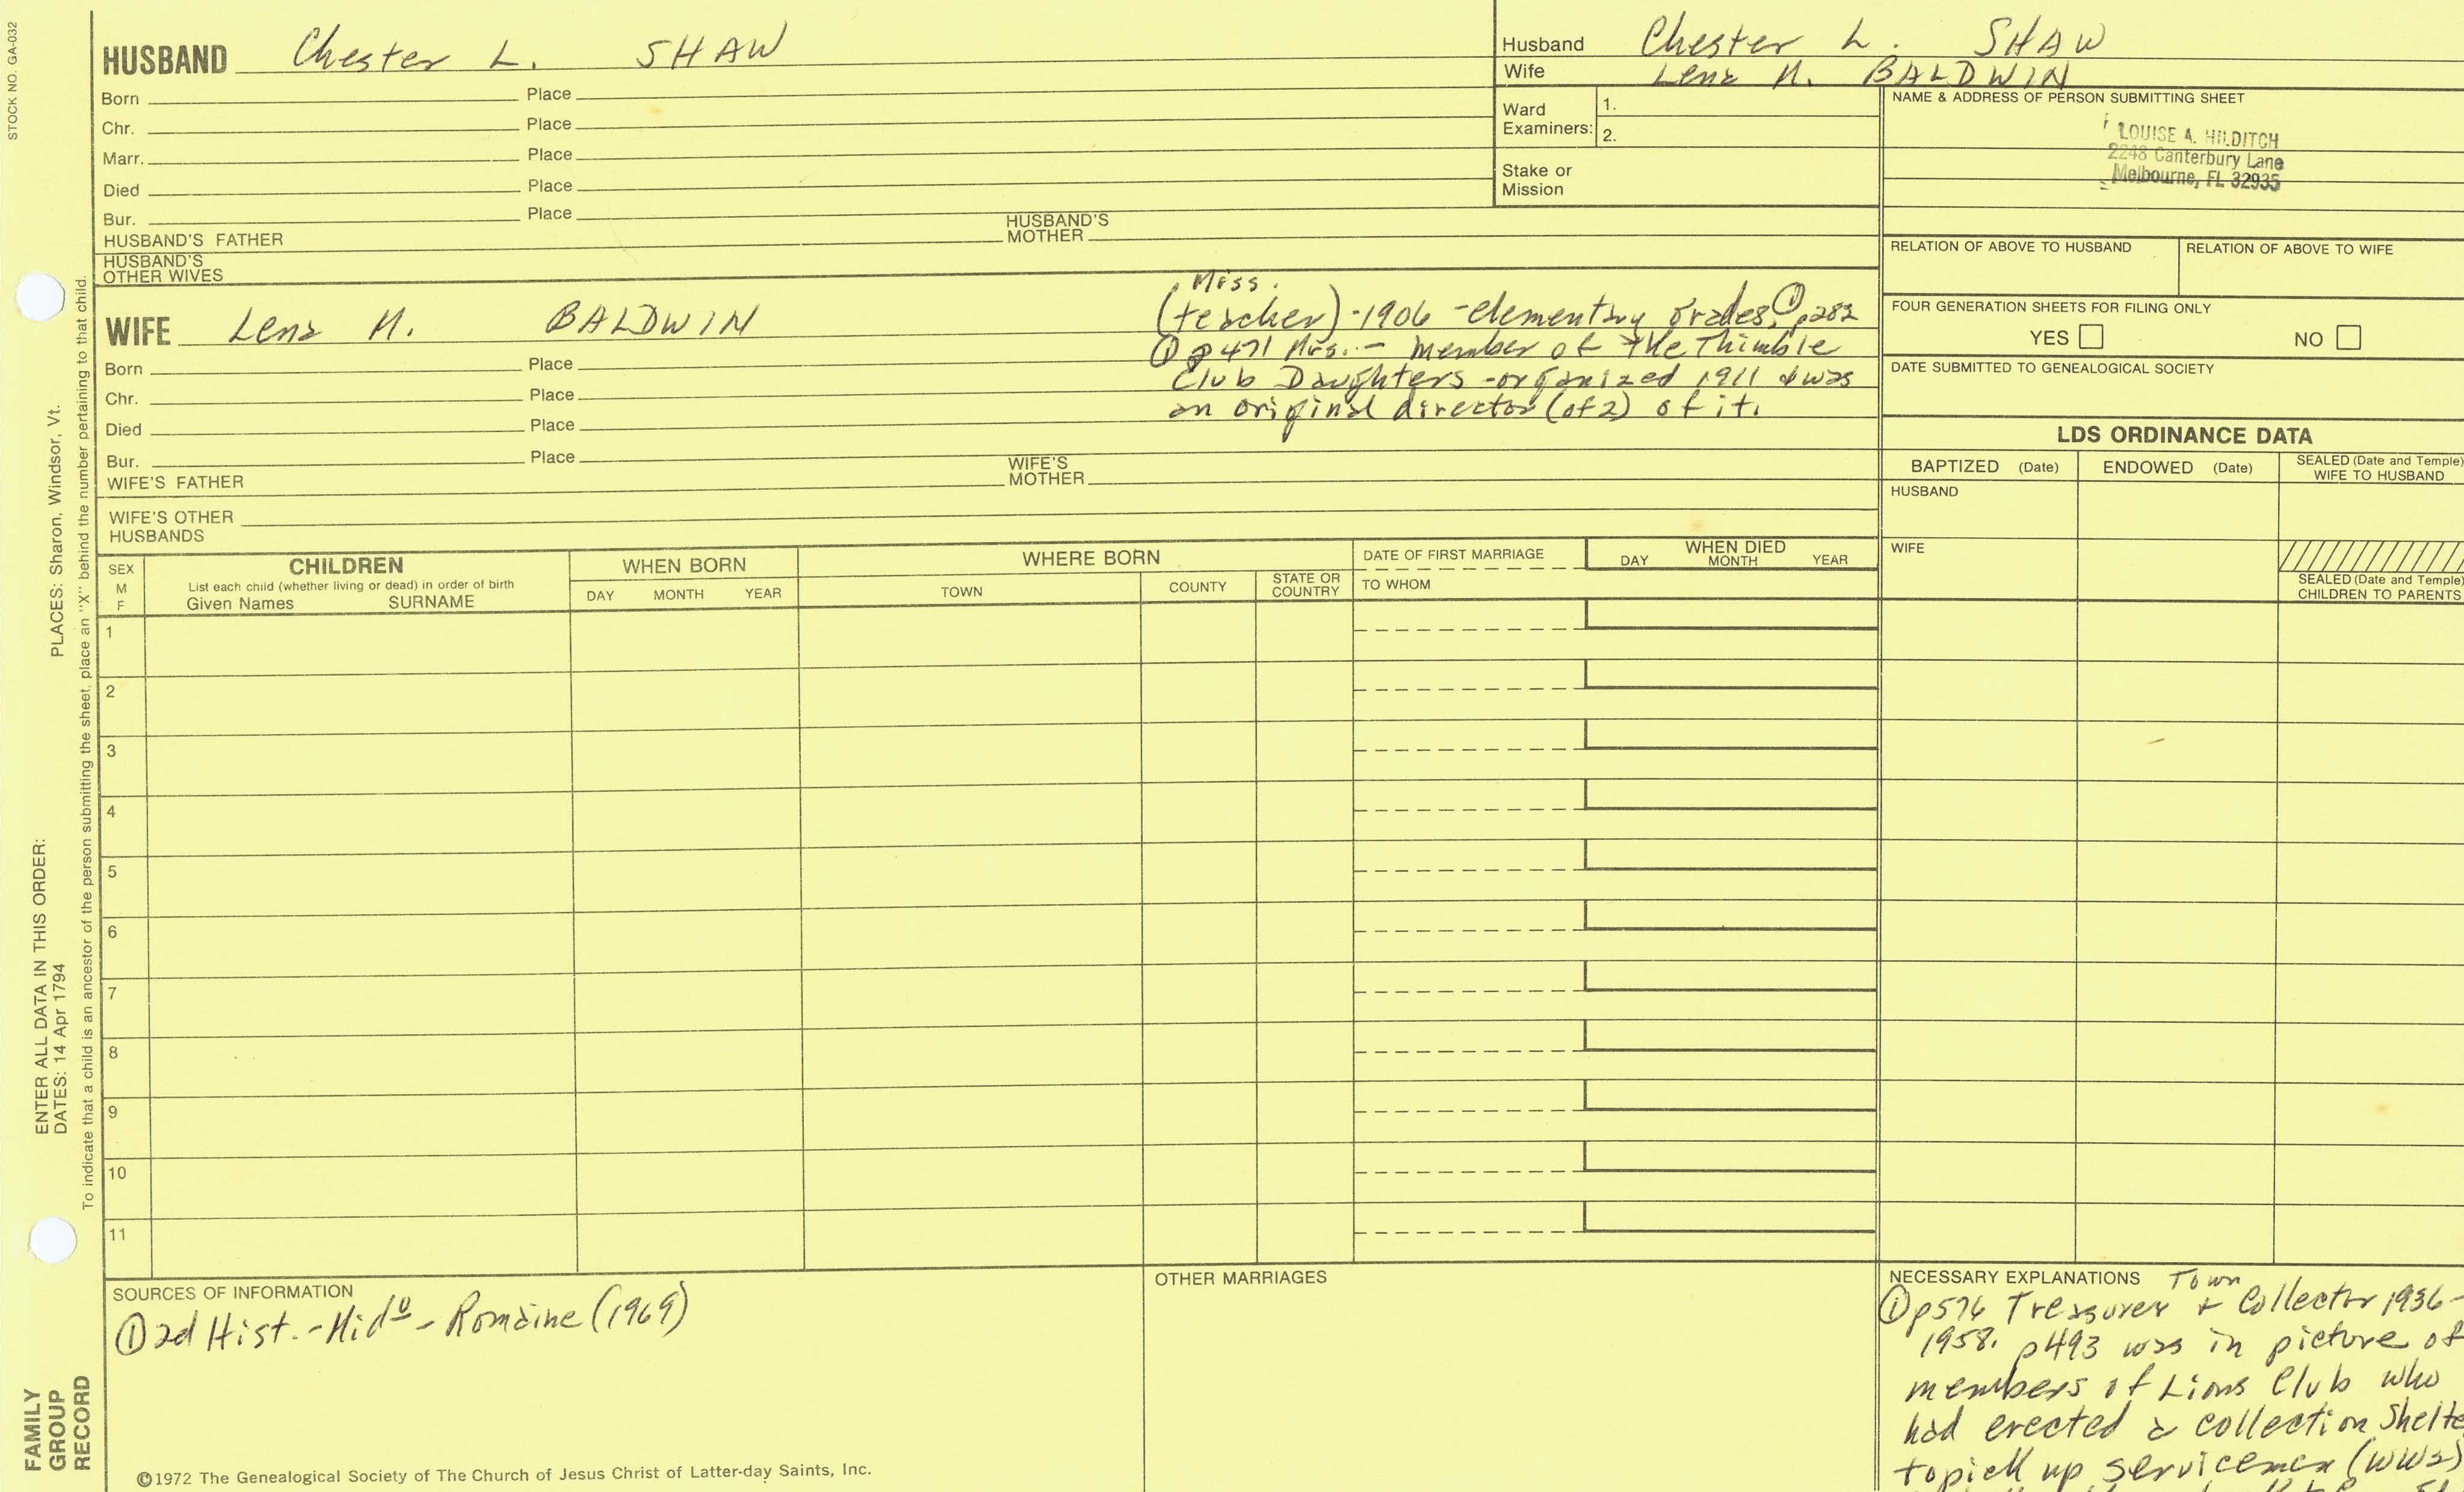 STOCK NO. GA-032
HUSBAND Chester L. SHAW
Born Place
Chr. Place
Marr. Place
Died Place
Bur. Place
HUSBAND'S FATHER HUSBAND'S MOTHER
HUSBAND'S OTHER WIVES
Husband Chester L. SHAW
Wife Lena M. BALDWIN
Ward Examiners: 1.
2.
Stake or Mission
NAME & ADDRESS OF PERSON SUBMITTING SHEET
LOUISE A. HILDITCH
2248 Canterbury Lane
Melbourne, FL 32935
RELATION OF ABOVE TO HUSBAND RELATION OF ABOVE TO WIFE
FOUR GENERATION SHEETS FOR FILING ONLY
YES NO
DATE SUBMITTED TO GENEALOGICAL SOCIETY
WIFE Lena M. BALDWIN
Miss.
(teacher) - 1906 - elementary grades, ① p282
① p471 Mrs. - member of the Thimble
Club Daughters - organized 1911 & was
an original director (of 2) of it.
Born Place
Chr. Place
Died Place
Bur. Place
WIFE'S FATHER WIFE'S MOTHER
WIFE'S OTHER HUSBANDS
LDS ORDINANCE DATA
BAPTIZED (Date) ENDOWED (Date) SEALED (Date and Temple) WIFE TO HUSBAND
HUSBAND
WIFE
SEALED (Date and Temple) CHILDREN TO PARENTS
SEX M F
CHILDREN
List each child (whether living or dead) in order of birth
Given Names SURNAME
WHEN BORN
DAY MONTH YEAR
WHERE BORN
TOWN COUNTY STATE OR COUNTRY
DATE OF FIRST MARRIAGE
TO WHOM
WHEN DIED
DAY MONTH YEAR
1
2
3
4
5
6
7
8
9
10
11
SOURCES OF INFORMATION
① 2d Hist. - Mid⁰ - Romaine (1969)
OTHER MARRIAGES
NECESSARY EXPLANATIONS
① p576 Treasurer Town & Collector 1936-
1958. p493 was in picture of
members of Lions Club who
had erected a collection Shelte
to pick up servicemen (WW2)
©1972 The Genealogical Society of The Church of Jesus Christ of Latter-day Saints, Inc.
PLACES: Sharon, Windsor, Vt.
ENTER ALL DATA IN THIS ORDER:
DATES: 14 Apr 1794
To indicate that a child is an ancestor of the person submitting the sheet, place an "X" behind the number pertaining to that child.
FAMILY
GROUP
RECORD